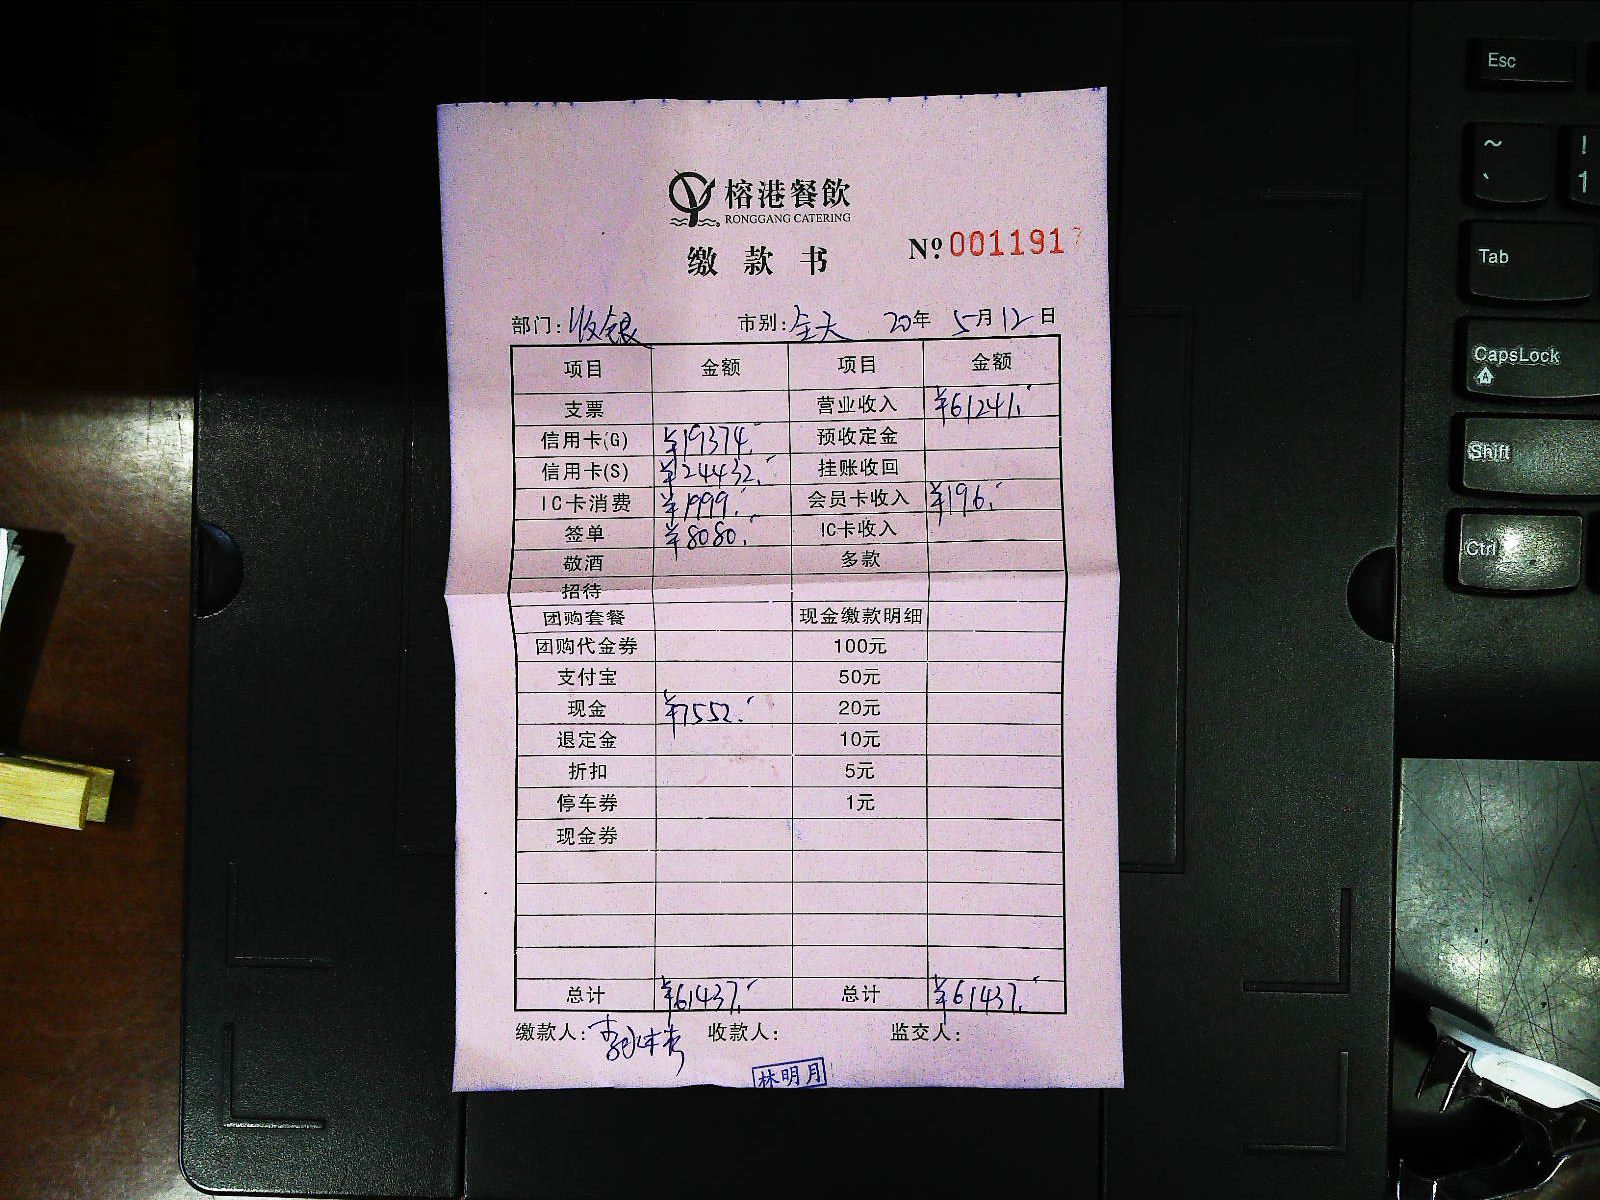 榕港餐飲
RONGGANG CATERING
缴款书
№ 0011917
部门: 收银 市别: 全天 20年 5月12日
项目 金额 项目 金额
支票 营业收入 ¥61241.-
信用卡(G) ¥19374.- 预收定金
信用卡(S) ¥24432.- 挂账收回
IC卡消费 ¥1999.- 会员卡收入 ¥196.-
签单 ¥8080.- IC卡收入
敬酒 多款
招待
团购套餐 现金缴款明细
团购代金券 100元
支付宝 50元
现金 ¥7552.- 20元
退定金 10元
折扣 5元
停车券 1元
现金券
总计 ¥61437.- 总计 ¥61437.-
缴款人: 收款人: 监交人:
林明月
Esc
~ !
` 1
Tab
CapsLock
A
Shift
Ctrl